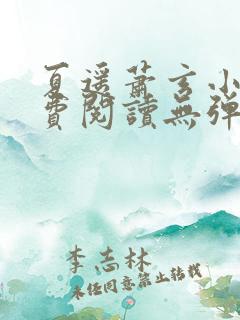 夏遥萧玄小
费阅读无弹
李志林
未经同意禁止转载